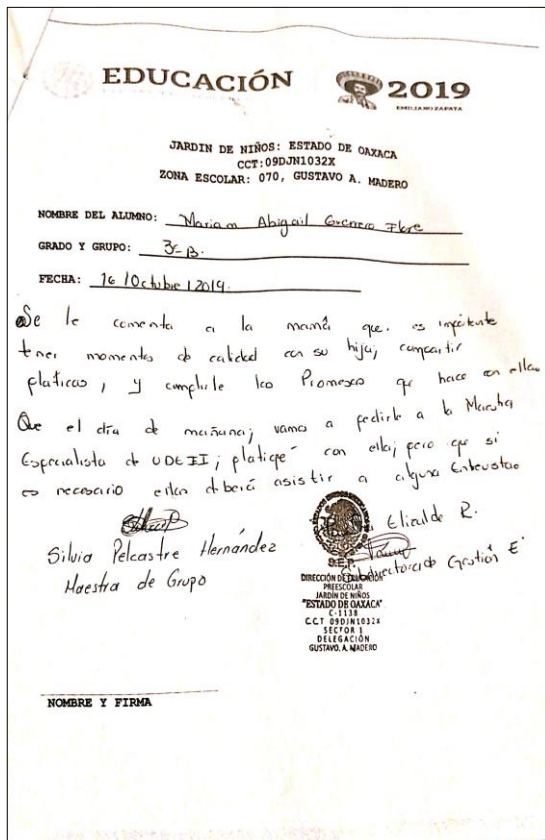 EDUCACIÓN
2019
EMILIANO ZAPATA
JARDIN DE NIÑOS: ESTADO DE OAXACA
CCT:09DJN1032X
ZONA ESCOLAR: 070, GUSTAVO A. MADERO
NOMBRE DEL ALUMNO: Mariam Abigail Guerrero
GRADO Y GRUPO: 3º B.
FECHA: 16 / Octubre / 2019.
Se le comenta a la mamá que es importante
tener momentos de calidad con su hija, compartir
platicas, y cumplirle las Promesas que hace con ellas
Que el día de mañana, vamos a pedirle a la Maestra
Especialista de UDEII; platiqué con ella; pero que si
es necesario ellas deberá asistir a alguna Entrevista
Elizalde R.
Silvia Pelcastre Hernández
Maestra de Grupo
Subdirectora de Gestión E
S.E.P.
DIRECCIÓN DE EDUCACIÓN
PREESCOLAR
JARDÍN DE NIÑOS
"ESTADO DE OAXACA"
C-1138
C.C.T 09DJN1032X
SECTOR 1
DELEGACIÓN
GUSTAVO. A. MADERO
NOMBRE Y FIRMA